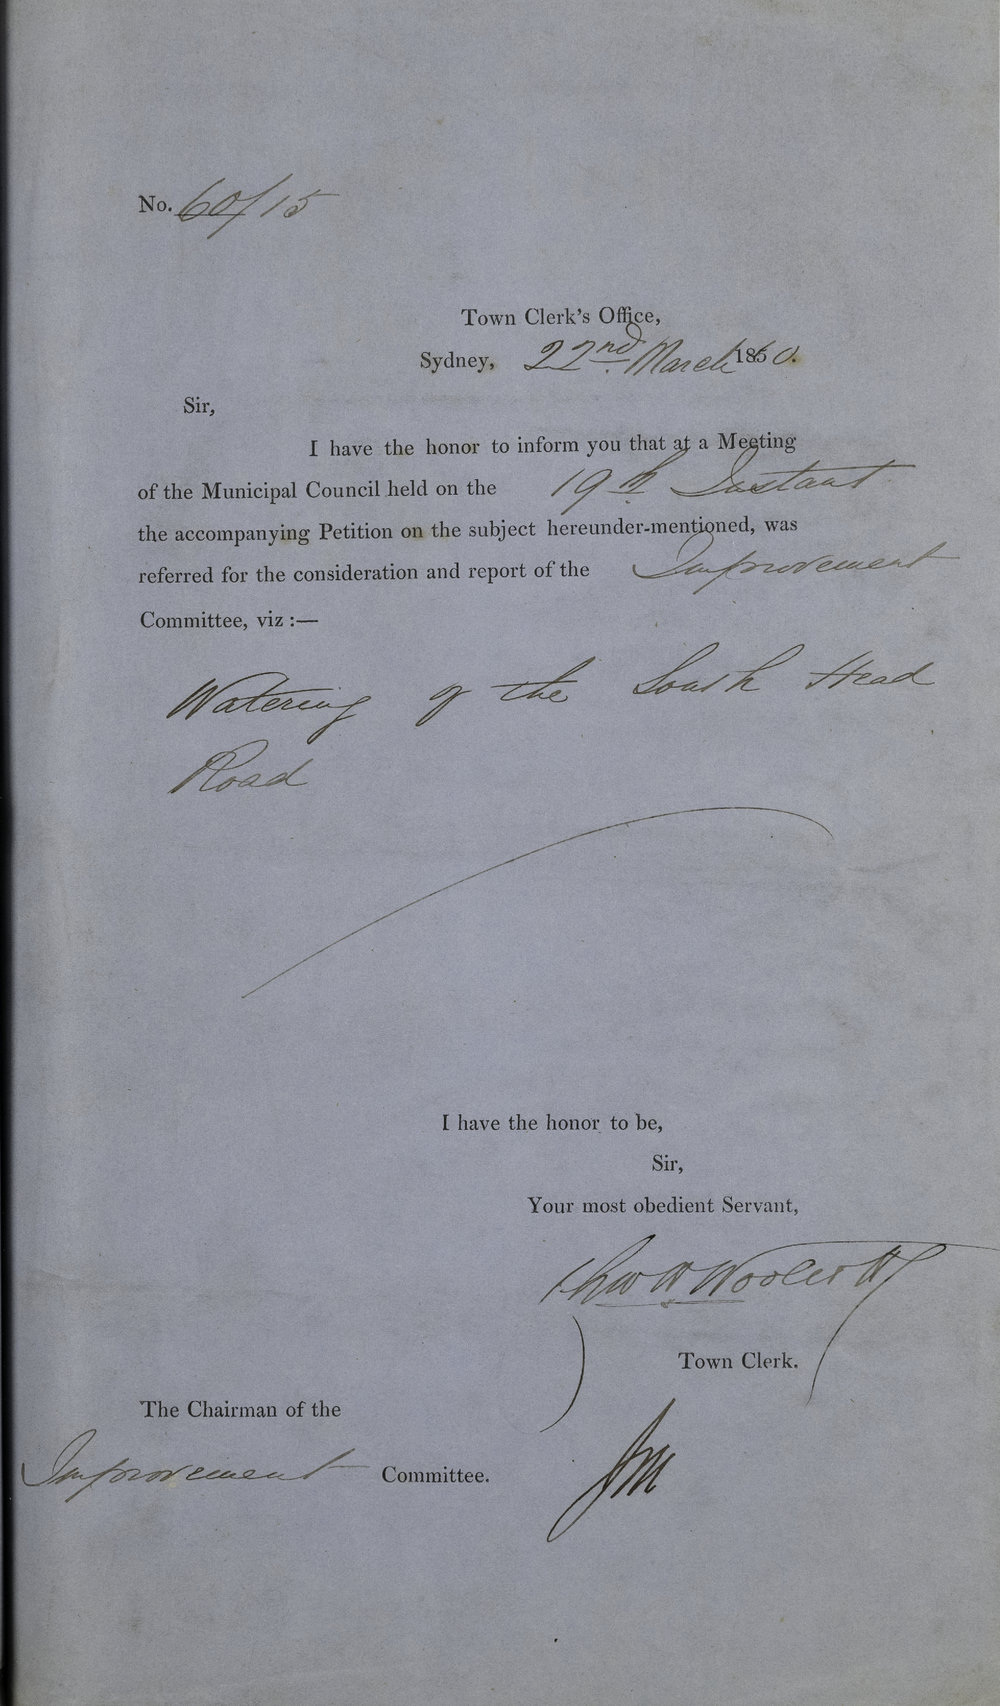 No. 60/15
Town Clerk's Office,
Sydney, 22nd March 1860.
Sir,
I have the honor to inform you that at a Meeting
of the Municipal Council held on the 19th Instant
the accompanying Petition on the subject hereunder-mentioned, was
referred for the consideration and report of the Improvement
Committee, viz :—
Watering of the South Head
Road
I have the honor to be,
Sir,
Your most obedient Servant,
Chas H Woolcott
Town Clerk.
The Chairman of the
Improvement Committee.